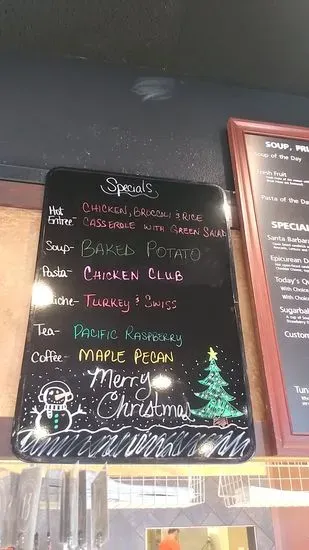 Specials
Hot Entree- CHICKEN, BROCCOLI & RICE
CASSEROLE WITH GREEN SALAD
Soup- BAKED POTATO
Pasta- CHICKEN CLUB
Quiche- TURKEY & SWISS
Tea- PACIFIC RASPBERRY
Coffee- MAPLE PECAN
Merry
Christmas
SOUP,
Soup of the Day
Fresh Fruit
Pasta of the
SPECIAL
Santa Barbar
Epicurean D
Today's Qu
With Choice
With Choice
Sugarbak
A cup of Sou
Custom
Tuna